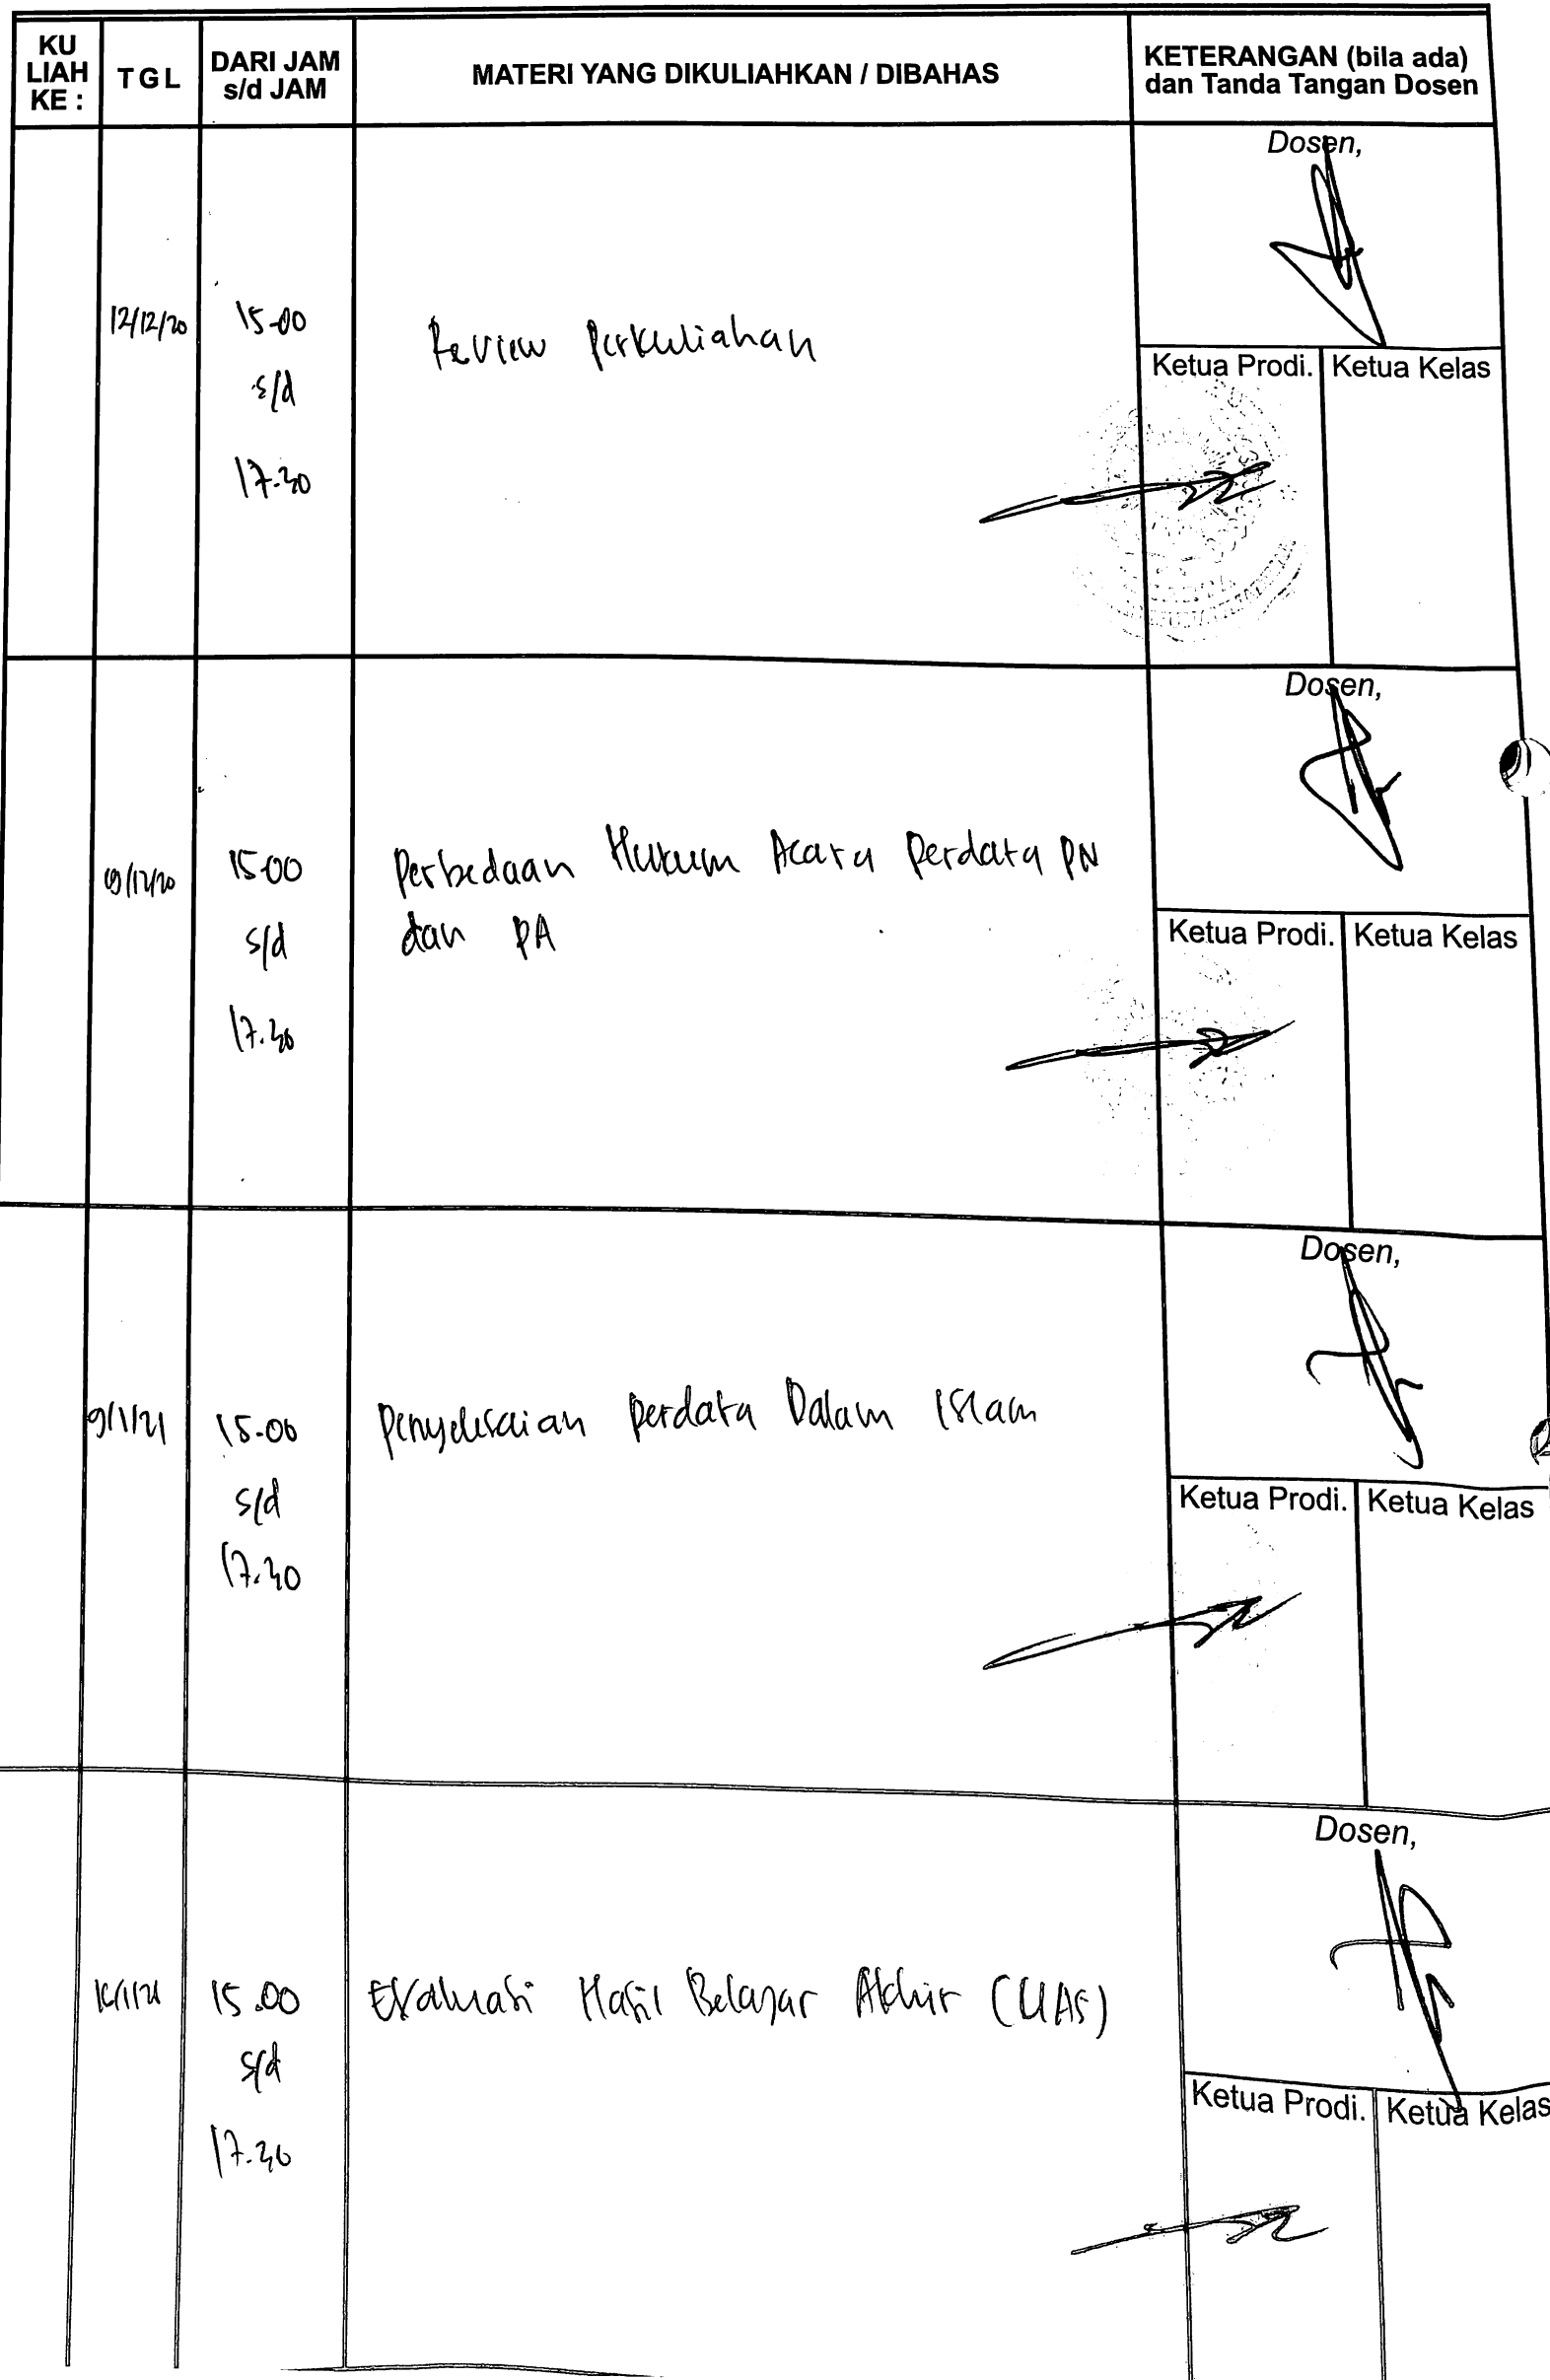 KU LIAH KE :
TGL
DARI JAM s/d JAM
MATERI YANG DIKULIAHKAN / DIBAHAS
KETERANGAN (bila ada) dan Tanda Tangan Dosen
12/12/20
15-00
s/d
17.30
Review Perkuliahan
Dosen,
Ketua Prodi.
Ketua Kelas
15.00
s/d
17.30
Perbedaan Hukum Acara Perdata PN
dan PA
Dosen,
Ketua Prodi.
Ketua Kelas
9/1/21
15.00
s/d
17.30
Penyelesaian Perdata Dalam Islam
Dosen,
Ketua Prodi.
Ketua Kelas
15.00
s/d
17.30
Evaluasi Hasil Belajar Akhir (UAS)
Dosen,
Ketua Prodi.
Ketua Kelas